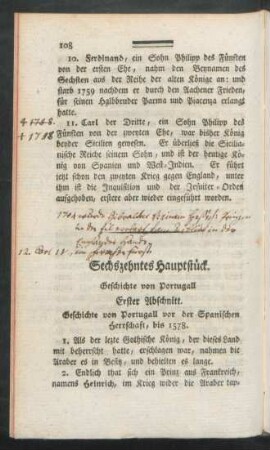 108
10. Ferdinand, ein Sohn Philipp des Fünften
von der ersten Ehe, nahm den Beynamen des
Sechsten aus der Reihe der alten Könige an: und
starb 1759 nachdem er durch den Aachener Frieden,
für seinen Halbbruder Parma und Piacenza erlangt
hatte.
11. Carl der Dritte, ein Sohn Philipp des
Fünften von der zweyten Ehe, war bisher König
beeder Sicilien gewesen. Er überließ die Sicilia-
nische Reiche seinem Sohn, und ist der heutige Kö-
nig von Spanien und West-Indien. Er führt
jetzt schon den zweyten Krieg gegen England, unter
ihm ist die Inquisition und der Jesuiter-Orden
aufgehoben, erstere aber wieder eingeführt worden.
† 1788
12. Carl IV.
Sechszehntes Hauptstück.
Geschichte von Portugall
Erster Abschnitt.
Geschichte von Portugall vor der Spanischen
Herrschaft, bis 1578.
1. Als der lezte Gothische König, der dieses Land
mit beherrscht hatte, erschlagen war, nahmen die
Araber es in Besitz, und behielten es lange.
2. Endlich that sich ein Prinz aus Frankreich,
namens Heinrich, im Krieg wider die Araber her-